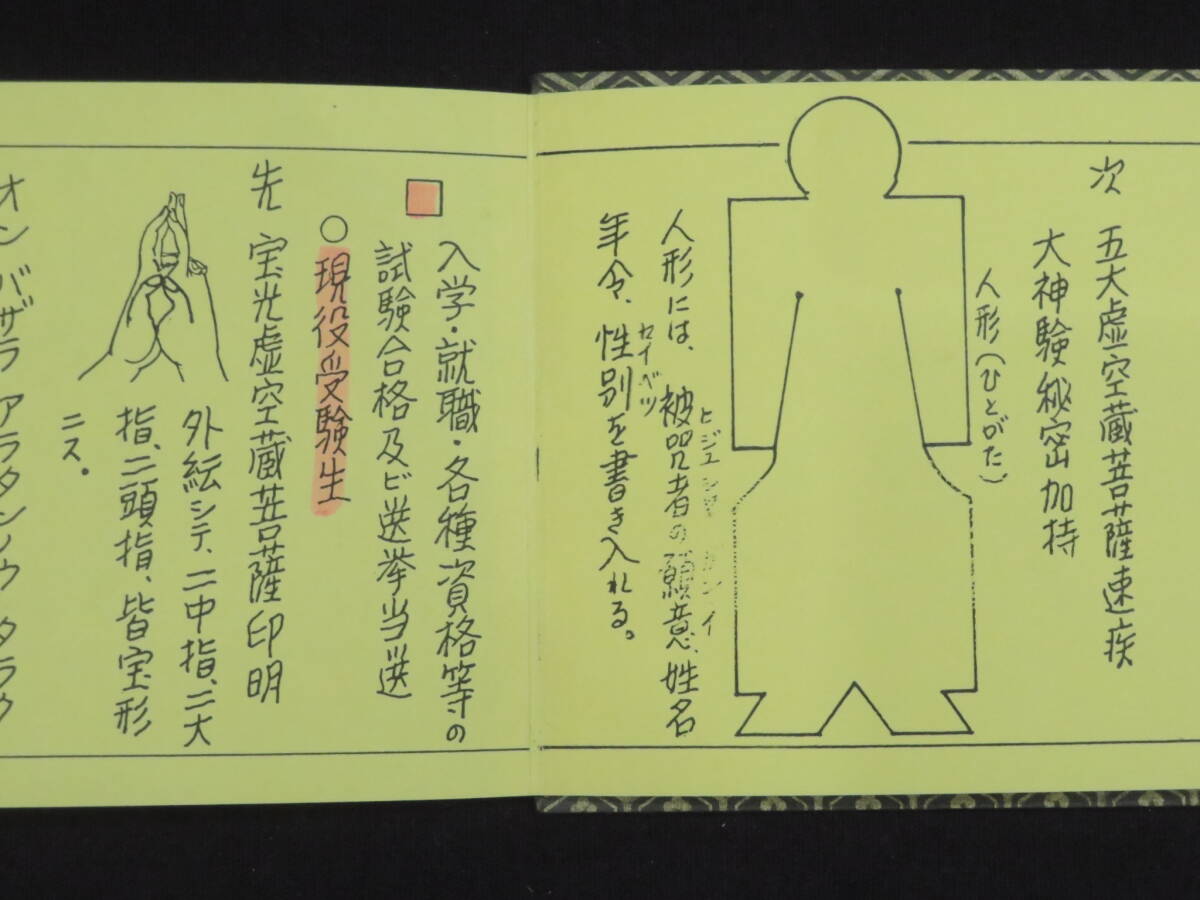 次 五大虚空蔵菩薩速疾
大神験秘密加持
人形(ひとがた)
人形には、被呪者の願意、姓名
ヒジュシャ ガンイ
年令、性別を書き入れる。
セイベツ
入学・就職・各種資格等の
試験合格及ビ選挙当選
○現役受験生
先 宝光虚空蔵菩薩印明
外縛シテ、二中指、二大
指、二頭指、皆宝形
ニス。
オン バザラ アラタンノウ タラク